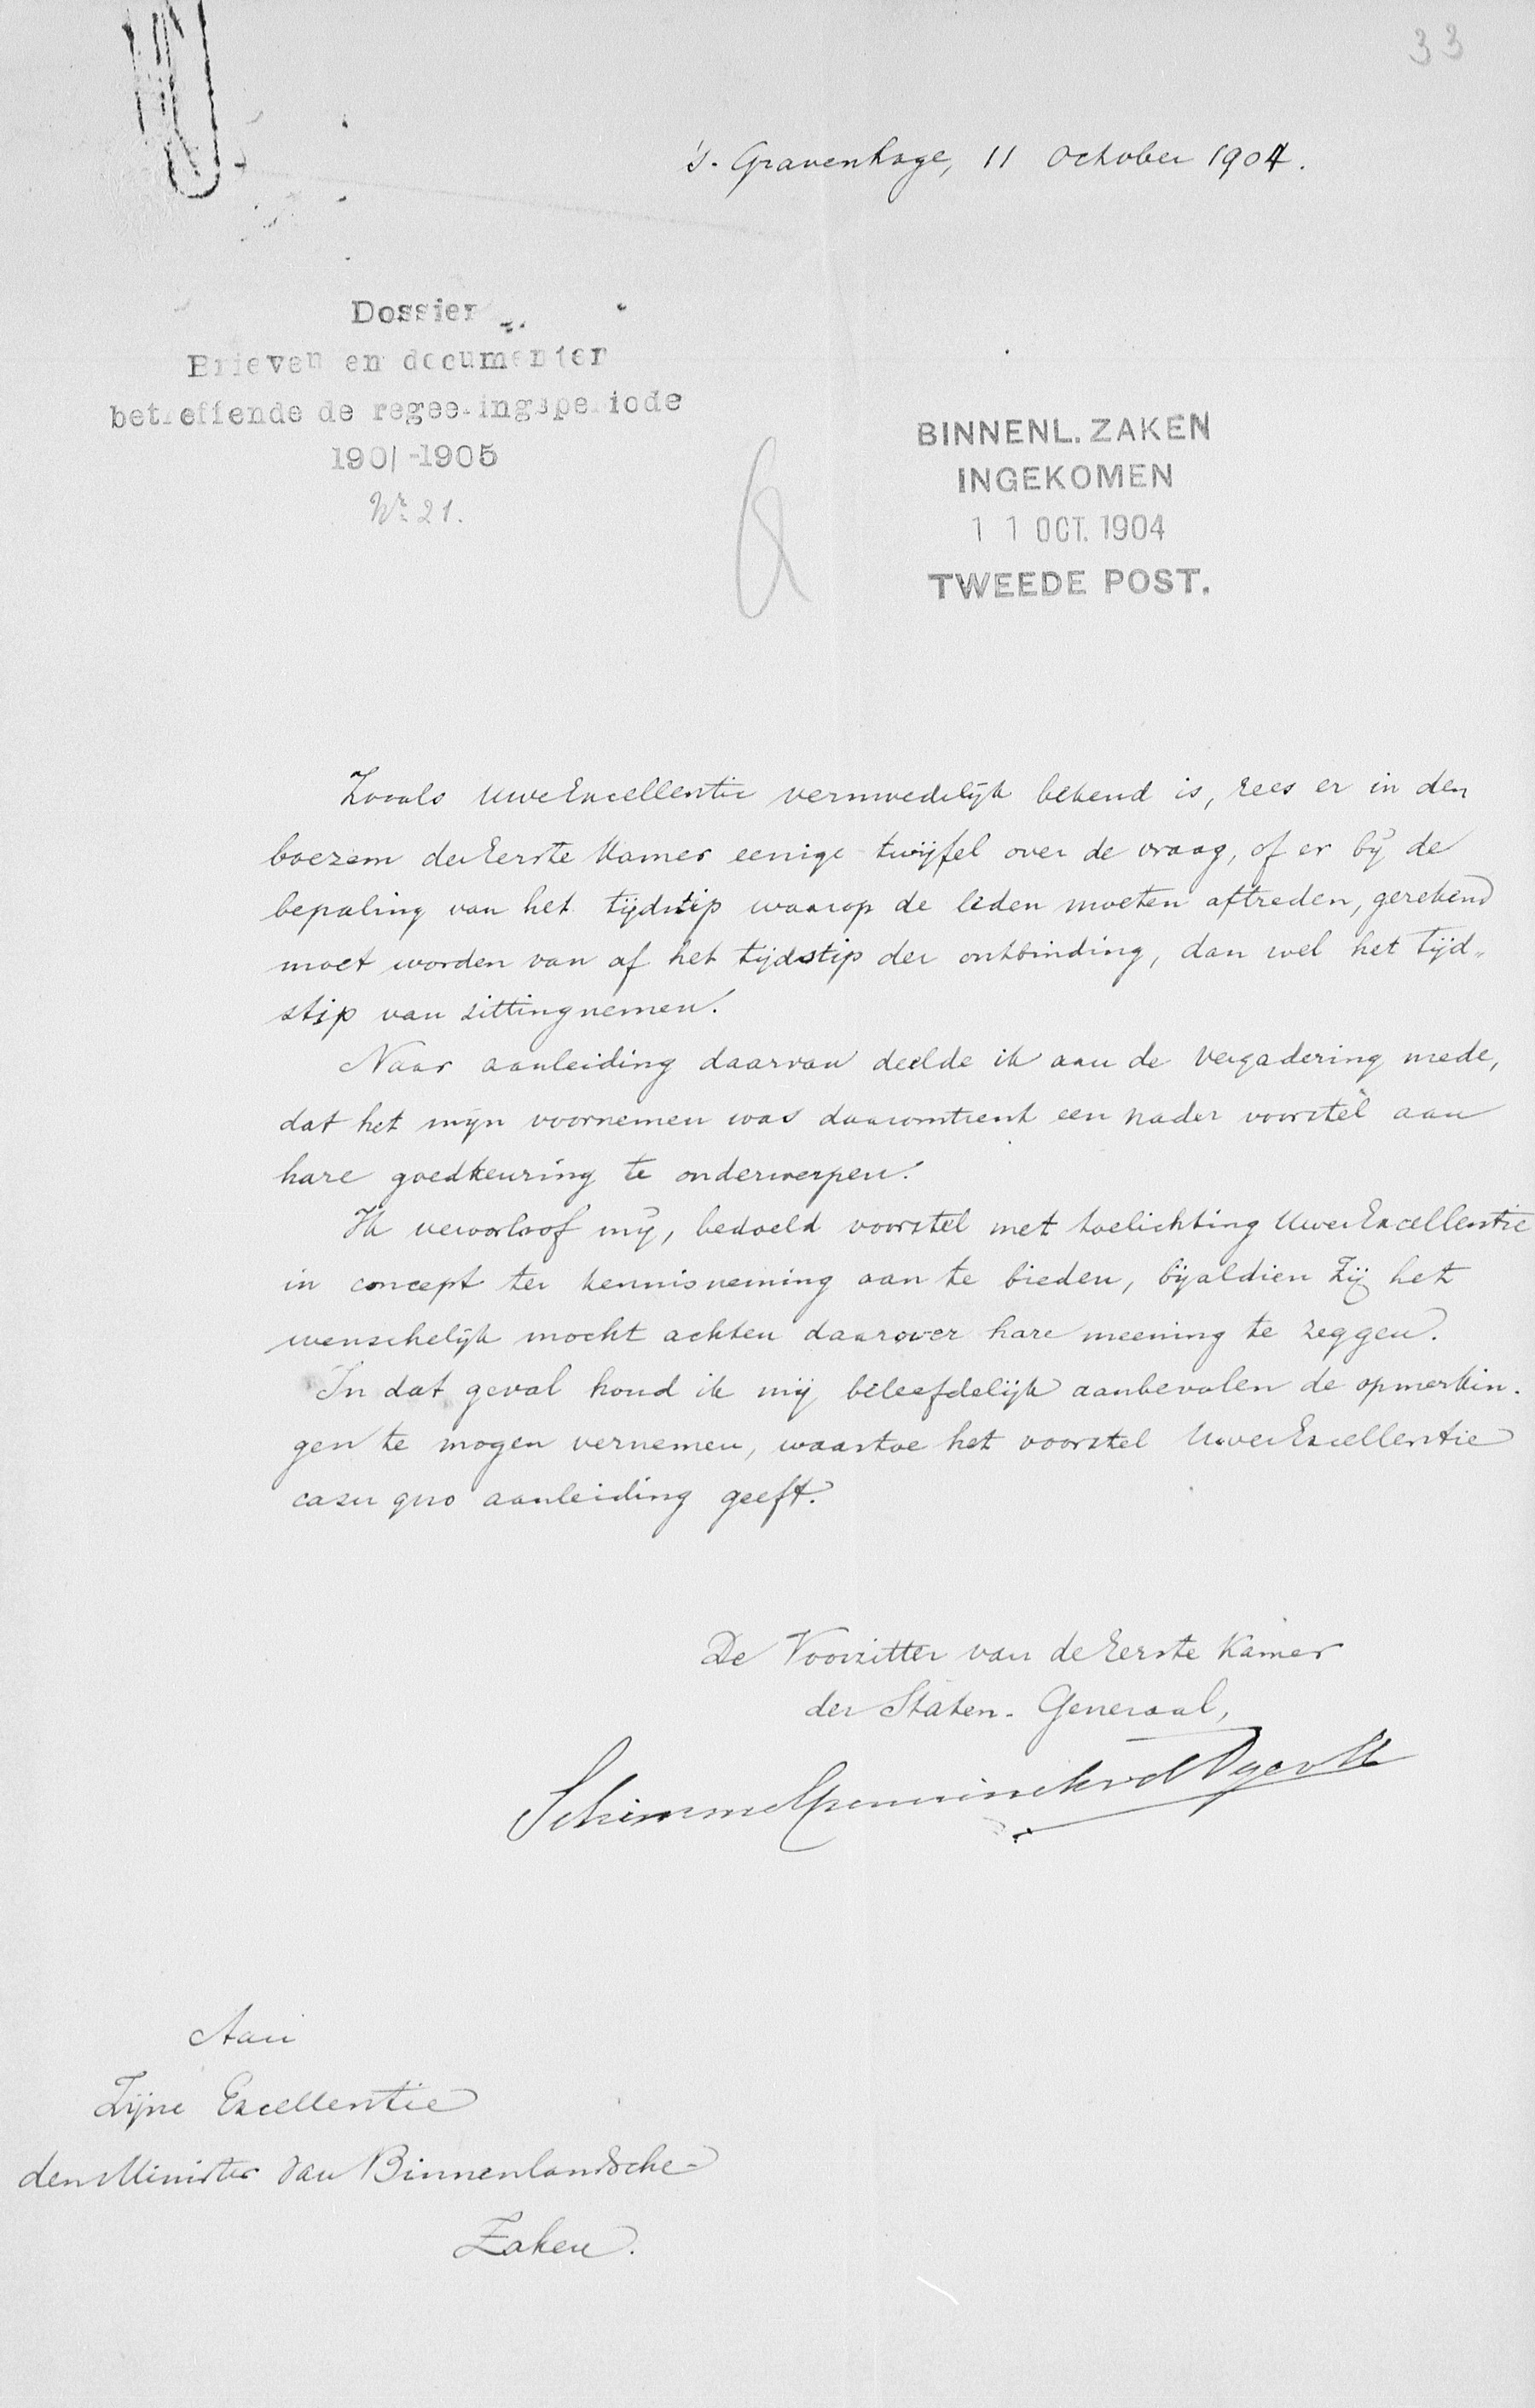 33
's-Gravenhage, 11 October 1904.
Dossier
Brieven en documenten
betreffende de regeeringsperiode
1901-1905
Nr. 21.
BINNENL. ZAKEN
INGEKOMEN
11 OCT. 1904
TWEEDE POST.
Zooals Uwe Excellentie vermoedelijk bekend is, rees er in den
boezem der Eerste Kamer eenige twijfel over de vraag, of er bij de
bepaling van het tijdstip waarop de leden moeten aftreden, gerekend
moet worden van af het tijdstip der ontbinding, dan wel het tijd-
stip van zittingnemen.
Naar aanleiding daarvan deelde ik aan de Vergadering mede,
dat het mijn voornemen was daaromtrent een nader voorstel aan
hare goedkeuring te onderwerpen.
Ik veroorloof mij, bedoeld voorstel met toelichting Uwer Excellentie
in concept ter kennisneming aan te bieden, bijaldien Zij het
wenschelijk mocht achten daarover hare meening te zeggen.
In dat geval houd ik mij beleefdelijk aanbevolen de opmerkin-
gen te mogen vernemen, waartoe het voorstel Uwer Excellentie
casu quo aanleiding geeft.
De Voorzitter van de Eerste Kamer
der Staten-Generaal,
Schimmelpenninck vd Oye
Aan
Zijne Excellentie
den Minister van Binnenlandsche
Zaken.